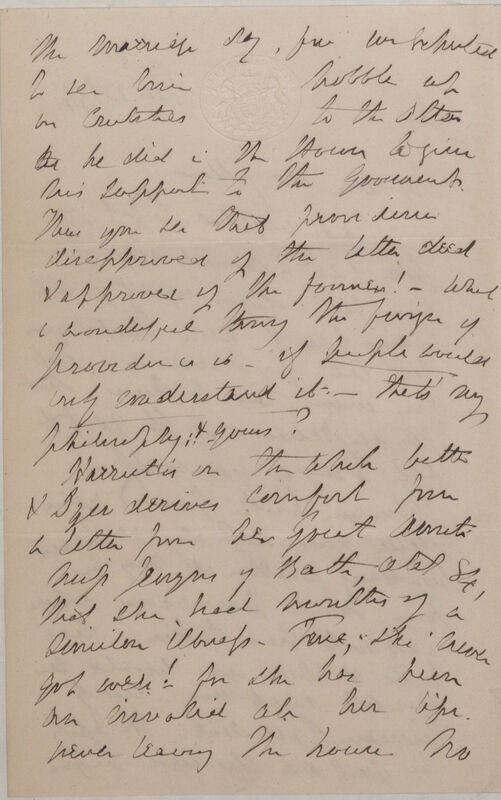 The marriage day, for we expected
to see him hobble up
on Crutches to the Altar
as he did in the House to give
his support to the Government.
Then you see that providence
disapproved of the latter deed
& approved of the former! - What
a wonderful thing the finger of
providence is - if people would
only understand it - that's my
philosophy; & yours?
Harriet is on the whole better
& derives comfort from
a letter from her great Aunt
Miss of Bath, aged 84,
that she had months of a
similar illness - True, she never
got well! for she has been
an invalid all her life.
never leaving the house. No